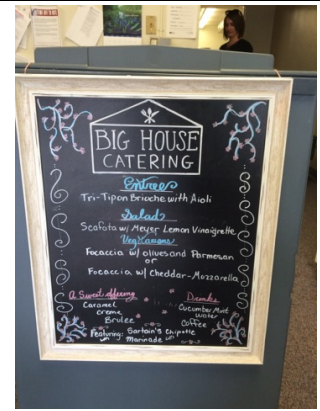 BIG HOUSE
CATERING
Entree
Tri-Tip on Brioche with Aioli
Salad
Scafata w/ Meyer Lemon Vinaigrette
Vegetariano
Focaccia w/ olives and Parmesan
or
Focaccia w/ Cheddar-Mozzarella
A Sweet offering
Caramel
creme
Brulee
Drinks
Cucumber Mint
Water
Coffee
Featuring: Sartain's Chipotle
Marinade